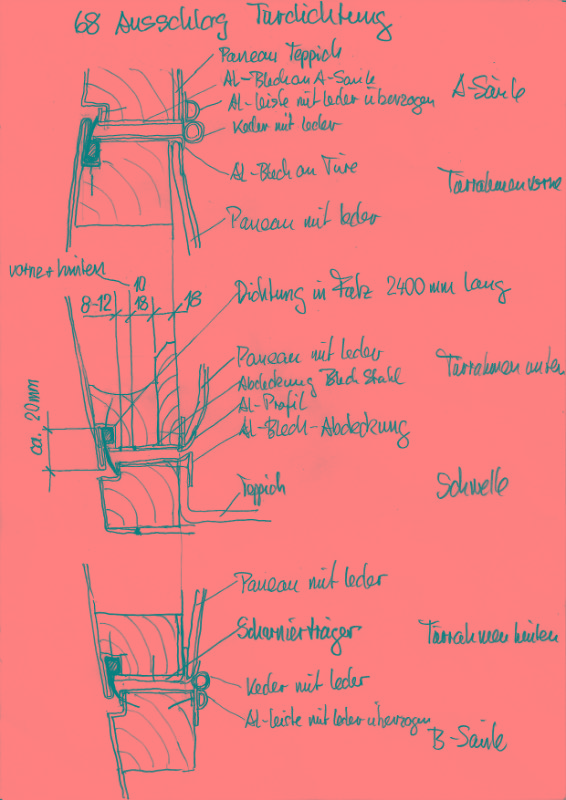 68 Ausschlag Türdichtung
Paneau Teppich
Al-Blech an A-Säule
Al-leiste mit leder überzogen
A-Säule
Keder mit leder
Al-Blech an Türe
Türrahmen vorne
Paneau mit leder
vorne + hinten
10
8-12 18 18
Dichtung in Falz 2400 mm lang
Paneau mit leder
Türrahmen unten
Abdeckung Blech Stahl
Al-Profil
Al-Blech-Abdeckung
ca. 20mm
Teppich
Schwelle
Paneau mit leder
Scharnierträger
Türrahmen hinten
Keder mit leder
Al-leiste mit leder überzogen
B-Säule